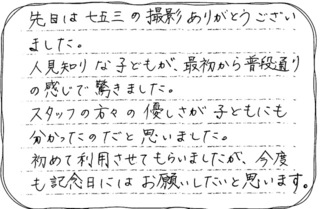 先日は七五三の撮影ありがとうござい
ました。
人見知りな子どもが、最初から普段通り
の感じで驚きました。
スタッフの方々の優しさが子どもにも
分かったのだと思いました。
初めて利用させてもらいましたが、今度
も記念日にはお願いしたいと思います。